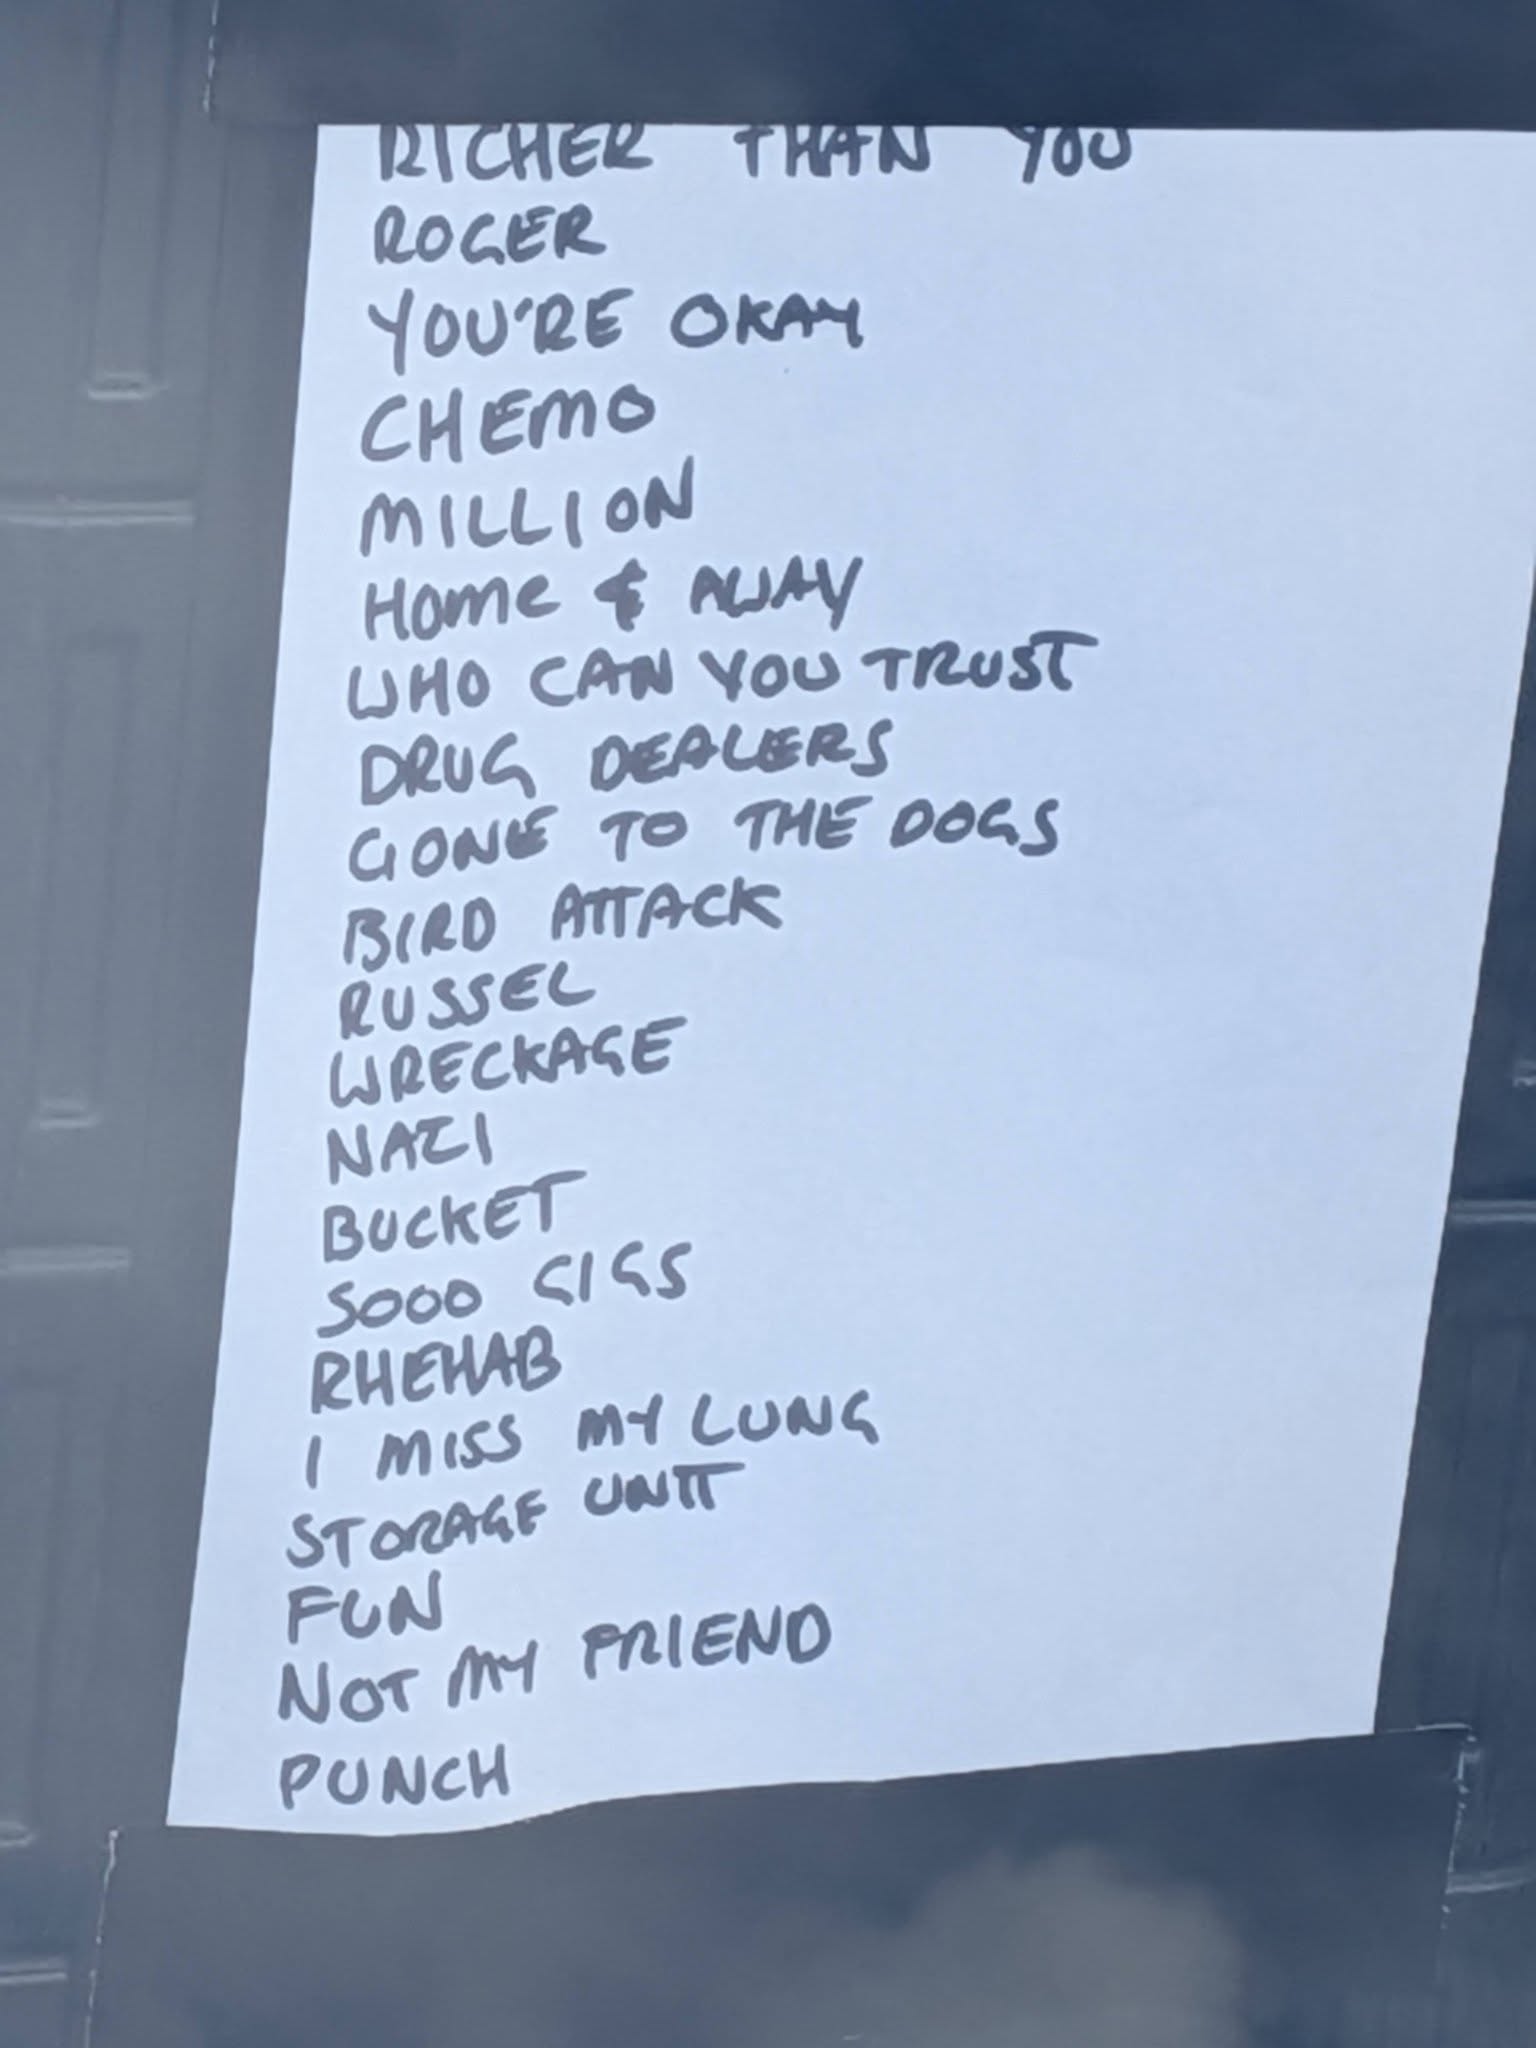 RICHER THAN YOU
ROGER
YOU'RE OKAY
CHEMO
MILLION
HOMe & AWAY
WHO CAN YOU TRUST
DRUG DEALERS
GONE TO THE DOGS
BIRD ATTACK
RUSSEL
WRECKAGE
NAZI
BUCKET
5000 GIGS
RHEHAB
I MISS MY LUNG
STORAGE UNIT
FUN
NOT MY FRIEND
PUNCH